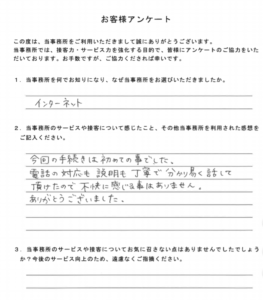 お客様アンケート
この度は、当事務所をご利用いただきまして誠にありがとうございます。
当事務所では、接客力・サービス力を強化する目的で、皆様にアンケートのご協力をいた
だいております。お手数ですが、ご協力くだされば幸いです。
1．当事務所を何でお知りになり、なぜ当事務所をお選びいただきましたか。
インターネット
2．当事務所のサービスや接客について感じたこと、その他当事務所を利用された感想を
ご記入ください。
今回の手続きは初めての事でした。
電話の対応も説明も丁寧で分かり易く話して
頂けたので不快に感じる事はありません。
ありがとうございました。
3．当事務所のサービスや接客についてお気に召さない点はありませんでしたでしょう
か？今後のサービス向上のため、遠慮なくご指摘ください。